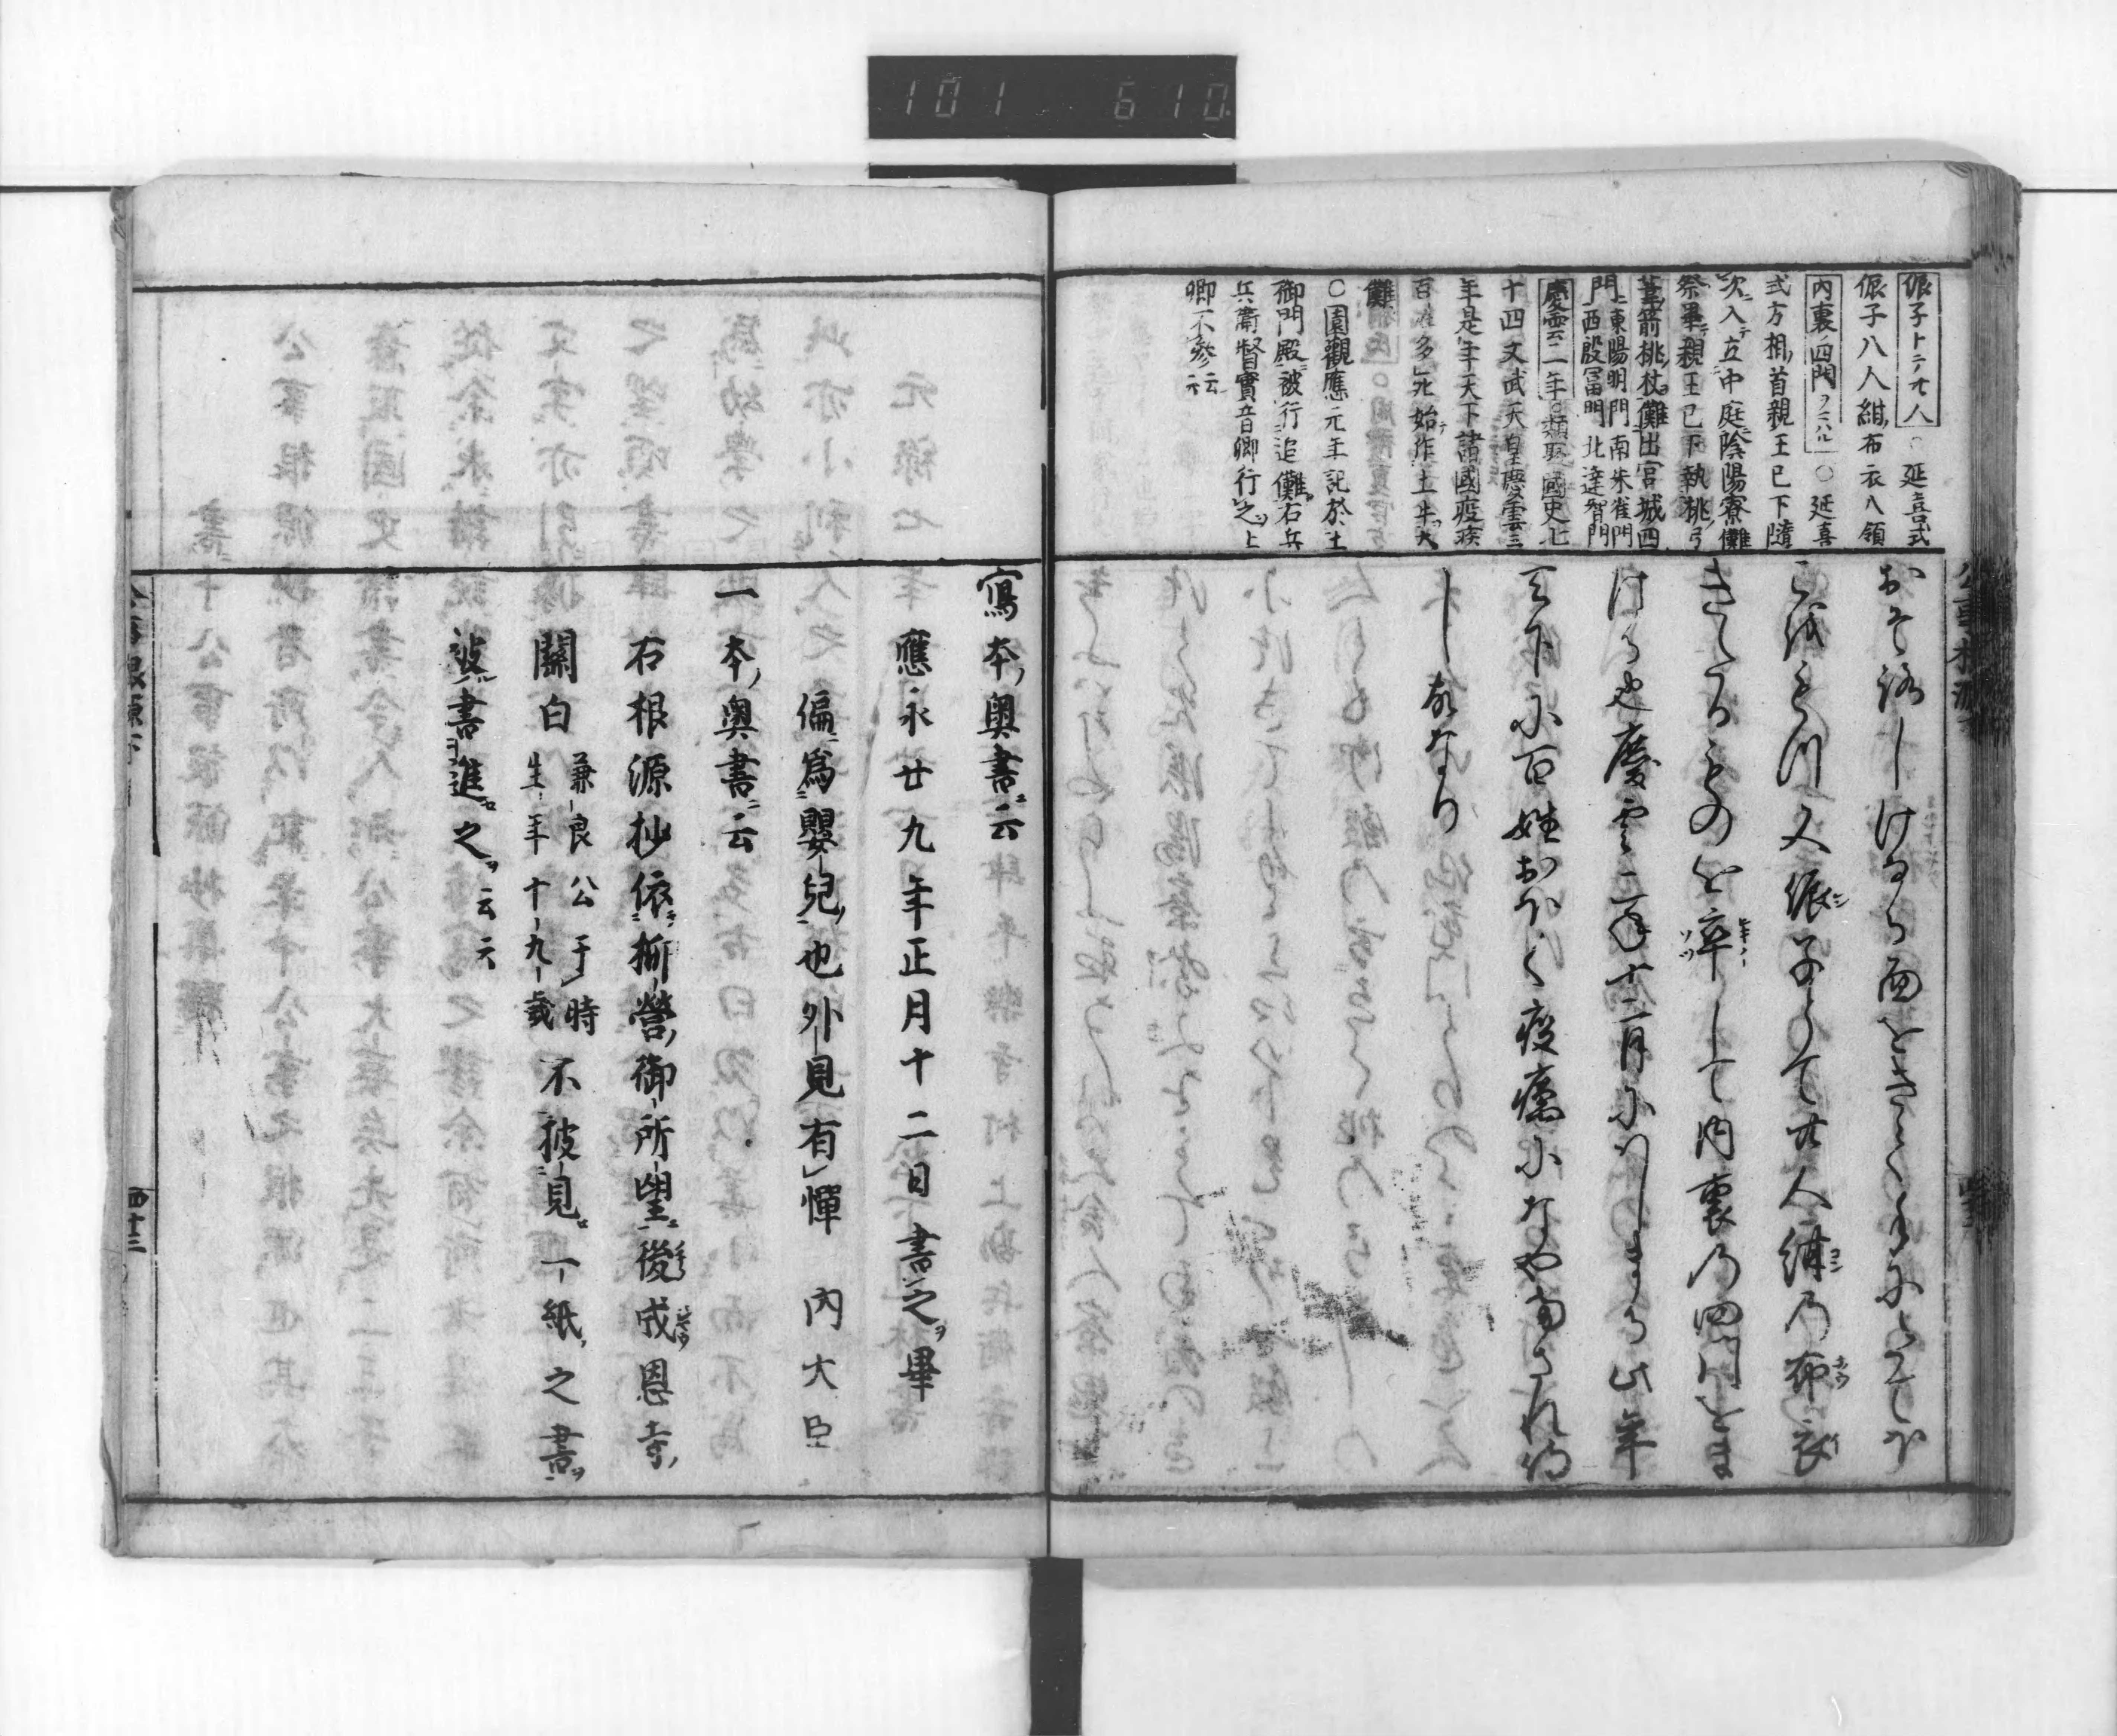 101 610
侲子トテ廿人 ○延喜式
侲子八人紺布衣八領
内裏ノ四門ヲマハル ○延喜
式方相首親王已下隨
次入立中庭陰陽寮儺
祭畢親王已下執桃弓
葦箭桃杖儺出宮城四
門東陽明門南朱雀門
西殷冨門北達智門
慶雲二年○類聚國史七
十四文武天皇慶雲三
年是年天下諸國疫疾
百姓多死始作土牛大
儺
○園觀應元年記於土
御門殿被行追儺右兵
兵衛督實音卿行之上
卿不參云云
おそろしけなる面をきて手にたてほ
こをもつ又侲子とて廿人紺の布衣
きたるものを率して内裏の四門をま
はる也慶雲二年十二月にはしまる此年
天下に百姓おほく疫癘になやまされ侍
し故なり
寫本奥書云
應永廿九年正月十二日書之畢
偏爲嬰兒也外見有憚 内大臣
一本奥書云
右根源抄依柳營御所望後成恩寺
關白兼良公于時生年十九歳不被見一紙之書
被書進之云云
四十三